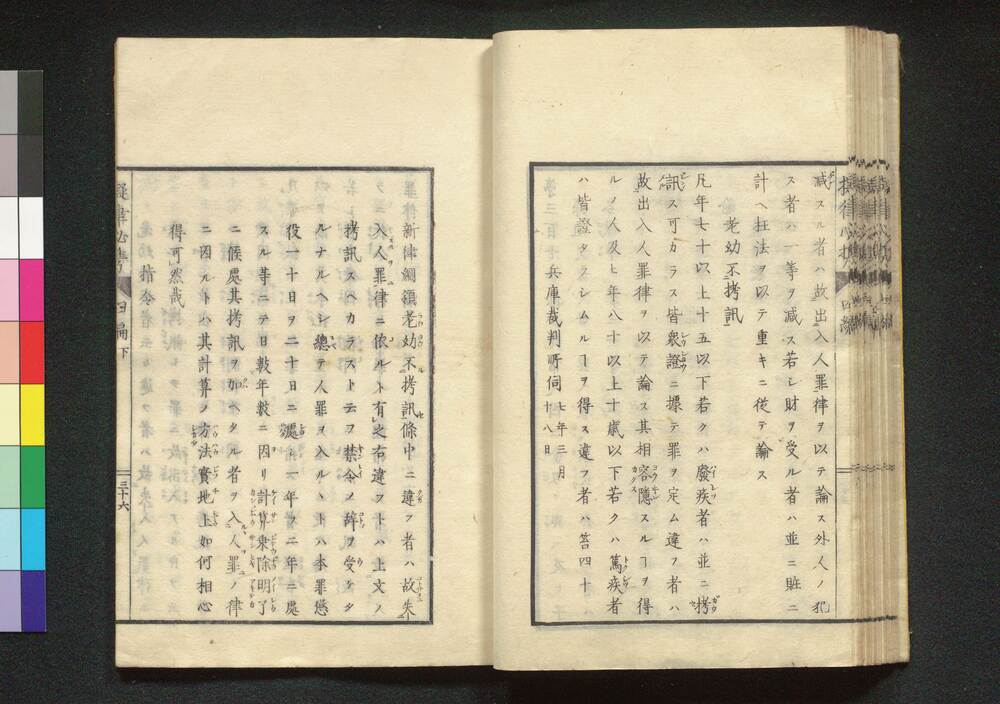 減スル者ハ故出入人罪律ヲ以テ論ス外人ノ犯
ス者ハ一等ヲ減ス若シ財ヲ受ル者ハ並ニ贓ニ
計ヘ枉法ヲ以テ重キニ從テ論ス
老幼不拷訊
凡年七十以上十五以下若クハ廢疾者ハ並ニ拷
訊ス可カラス皆衆證ニ據テ罪ヲ定ム違フ者ハ
故出入人罪律ヲ以テ論ス其相容隱スルヿヲ得
ルノ人及ヒ年八十以上十歲以下若クハ篤疾者
ハ皆證タラシムルヿヲ得ス違フ者ハ笞四十
兵庫裁判所伺 七年三月十八日
罪律新律綱領老幼不拷訊條中ニ違フ者ハ故失
入人罪律ニ依ルト有之右違フトハ上文ノ
拷訊スヘカラストテ云フ禁令ノ辭ヲ受ケタ
ルナルヘシ總テ人罪ヲ入ルヽトハ本罪懲
役一十日ヲ二十日ニ處シ一年ヲ二年ニ處
スル等ニテ日數年數ニ因リ計算乘除明了
ニ候處其拷訊ヲ加ヘタル者ヲ入人罪ノ律
ニ因ルトハ其計算ノ方法實地上如何相心
得可然哉
擬律必携 四編下
三十六